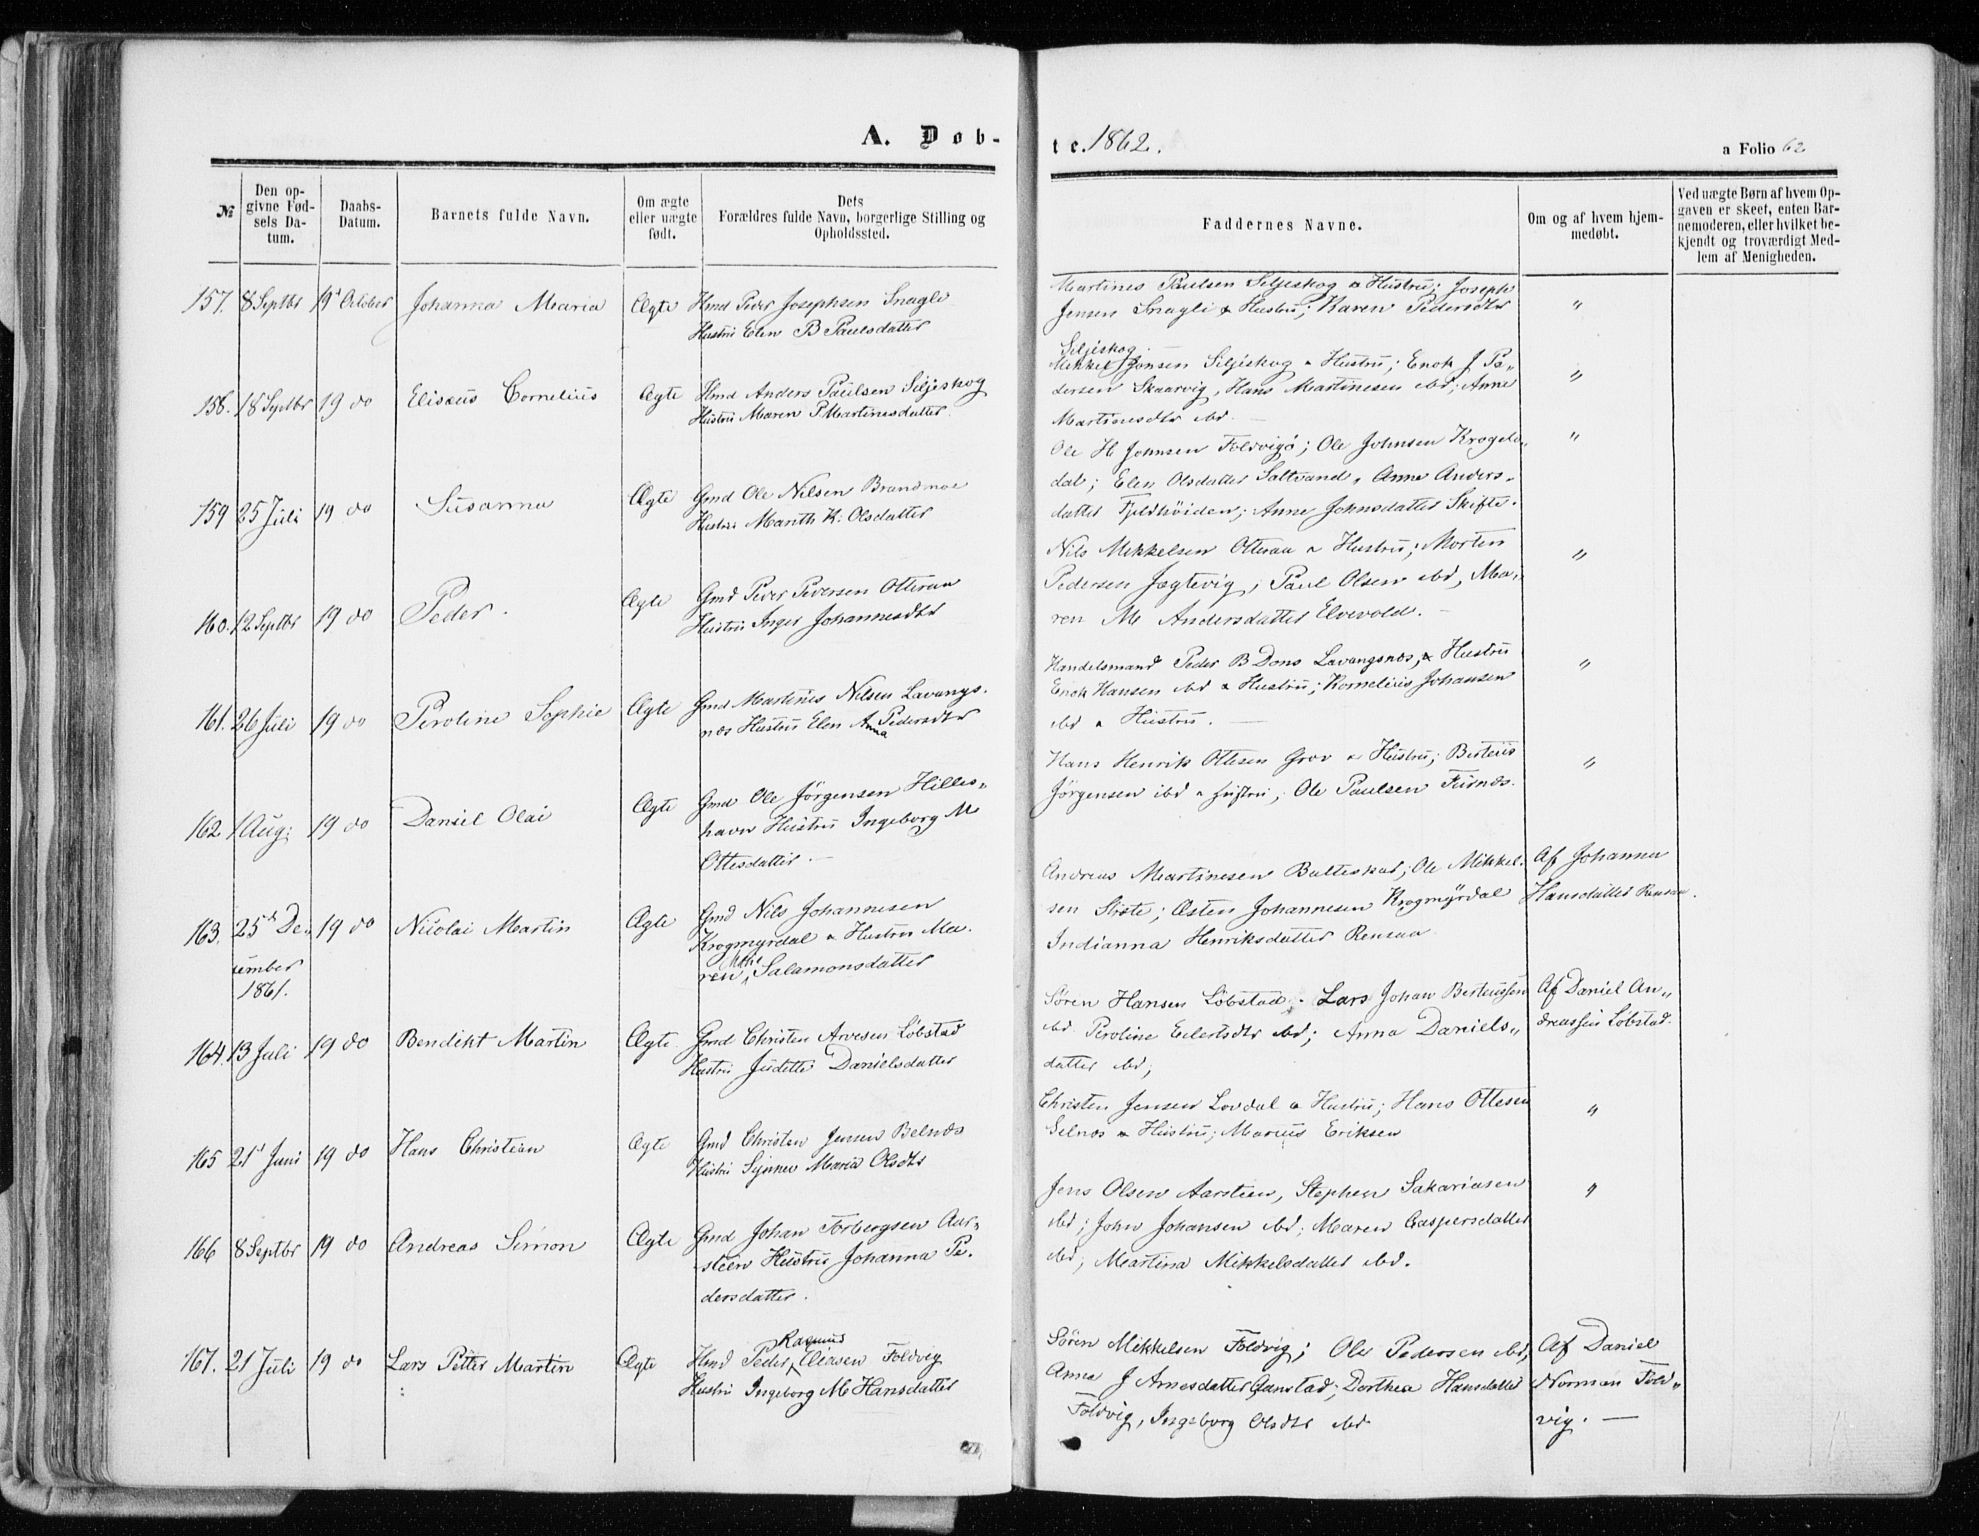 A. Døb-
te. 1862.
a Folio 62
№
Den op-
givne Fød-
sels Da-
tum.
Daabs-
Datum.
Barnets fulde Navn.
Om ægte
eller uægte
født.
Dets
Forældres fulde Navn, borgerlige Stilling og
Opholdssted.
Faddernes Navne.
Om og af hvem hjem-
medøbt.
Ved uægte Børn af hvem Op-
gaven er skeet, enten Bar-
nemoderen, eller hvilket be-
kjendt og troværdigt Med-
lem af Menigheden.
157. 8 Septbr 19d October Johanna Maria Ægte Hmd Peder Josephsen Snagli
Hustru Elen B Paulsdatter
Martines Paulsen Siljeskog & Hustru; Joseph
Jensen Snagli & Hustru; Karen Pedersdtr
Siljeskog. —
"
158. 18 Septbr 19 do Elisæus Cornelius Ægte Hmd Anders Paulsen Siljeskog
Hustru Maren P Martinesdatter
Mikkel Jonsen Siljeskog & Hustru; Enok J Pe„
dersen Skaarvig, Hans Martinesen ibd; Anne
Martinesdtr ibd —
"
159 25 Juli 19 do Susanna Ægte Gmd Ole Nilsen Brandmoe
Hustru Marith K: Olsdatter
Ole H Johnsen Foldvigø; Ole Johnsen Krogda„
dal; Elen Olsdatter Saltvand, Anne Anders„
datter Fjeldhøiden; Anne Johnsdatter Skifte.
"
160. 12 Septbr 19 do Peder. Ægte Gmd Peder Pedersen Otteraa
Hustru Inger Johannesdtr
Nils Mikkelsen Otteraa & Hustru; Morten
Pedersen Jægtevig; Paul Olsen ibd, Ma„
ren M Andersdatter Elvevold. —
"
161. 26 Juli 19 do Peroline Sophie Ægte Gmd Martinus Nilsen Lavangs-
næs Hustru Elen Anna Pedersdtr
Handelsmand Peder B Dons Lavangsnæs, & Hustru
Enok Hansen ibd & Hustru; Kornelius Johansen
ibd & Hustru. —
"
162 1 Aug: 19 do Daniel Olai Ægte Gmd Ole Jörgensen Hilles„
havn Hustru Ingeborg M
Ottesdatter. —
Hans Henrik Ottesen Grov & Hustru; Berteus
Jörgensen ibd & Hustru; Ole Paulsen Furnæs.
"
163. 25de De-
cember
1861. 19 do Nicolai Martin Ægte Gmd Nils Johannesen
Krogmyrdal & Hustru Ma-
ren Salamonsdatter
Andreas Martinesen Balteskar; Ole Mikkel-
sen Skøte; Østen Johannesen Krogmyrdal
Indianna Henriksdatter Rensaa
Af Johanna
Hansdatter Rensaa.
164. 13 Juli 19 do Bendikt Martin Ægte Gmd Christen Arvesen Löbstad
Hustru Judette Danielsdatter
Søren Hansen Löbstad. Lars Johan Berteussen
ibd. Peroline Eilertsdtr ibd; Anna Daniels„
datter ibd;
Af Daniel An„
dreassen Löbstad.
165 21d Juni 19 do Hans Christian Ægte Gmd Christen Jensen Belnæs
Hustru Synnev Maria Olsdtr
Christen Jensen Lovdal & Hustru; Hans Ottesen
Selnæs & Hustru; Marius Eriksen
"
166 8 Septbr 19 do Andreas Simon Ægte Gmd Johan Torbergsen Aar„
steen Hustru Johanna Pe-
dersdatter.
Jens Olsen Aarsteen, Stephen Sakariasen
ibd; John Johansen ibd; Maren Caspersdatter
ibd; Martina Mikkelsdatter ibd.
"
167. 21 Juli 19 do Lars Petter Martin Ægte Hmd Peder Rasmus Eliasen Foldvig
Hustru Ingeborg M Hansdatter
Søren Mikkelsen Foldvig; Ole Pedersen ibd;
Anna J Arnesdatter Ganstad; Dorthea Hansdatter
Foldvig, Ingeborg Olsdtr ibd
Af Daniel
Norman Fold„
vig. —